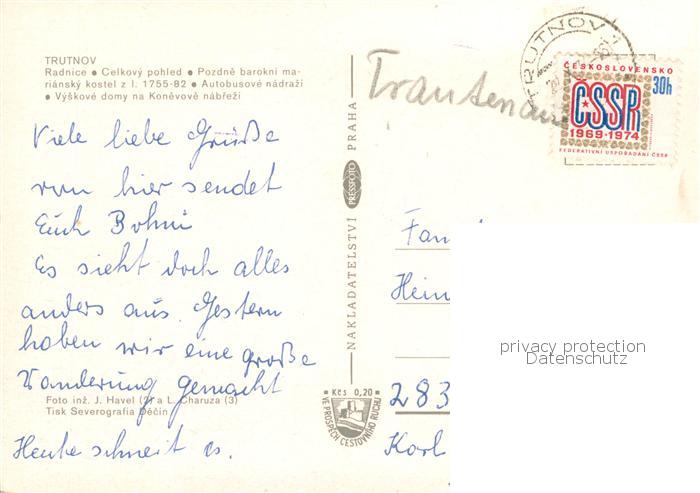 TRUTNOV
Radnice • Celkový pohled • Pozdně barokní ma-
riánský kostel z l. 1755-82 • Autobusové nádraží
• Výškové domy na Koněvově nábřeží
Viele liebe Grüße
von hier sendet
Euch Bohni
Es sieht doch alles
anders aus. Gestern
haben wir eine große
Wanderung gemacht
Foto inž. J. Havel (2) a L. Charuza (3)
Tisk Severografia Děčín
Heute schneit es.
NAKLADATELSTVÍ PRESSFOTO PRAHA
Kčs 0,20
VE PROSPĚCH CESTOVNÍHO RUCHU
Trautenau
TRUTNOV 1
ČESKOSLOVENSKO
30h
ČSSR
1969-1974
FEDERATIVNÍ USPOŘÁDÁNÍ ČSSR
Fam
Hein
283
Karl
privacy protection
Datenschutz